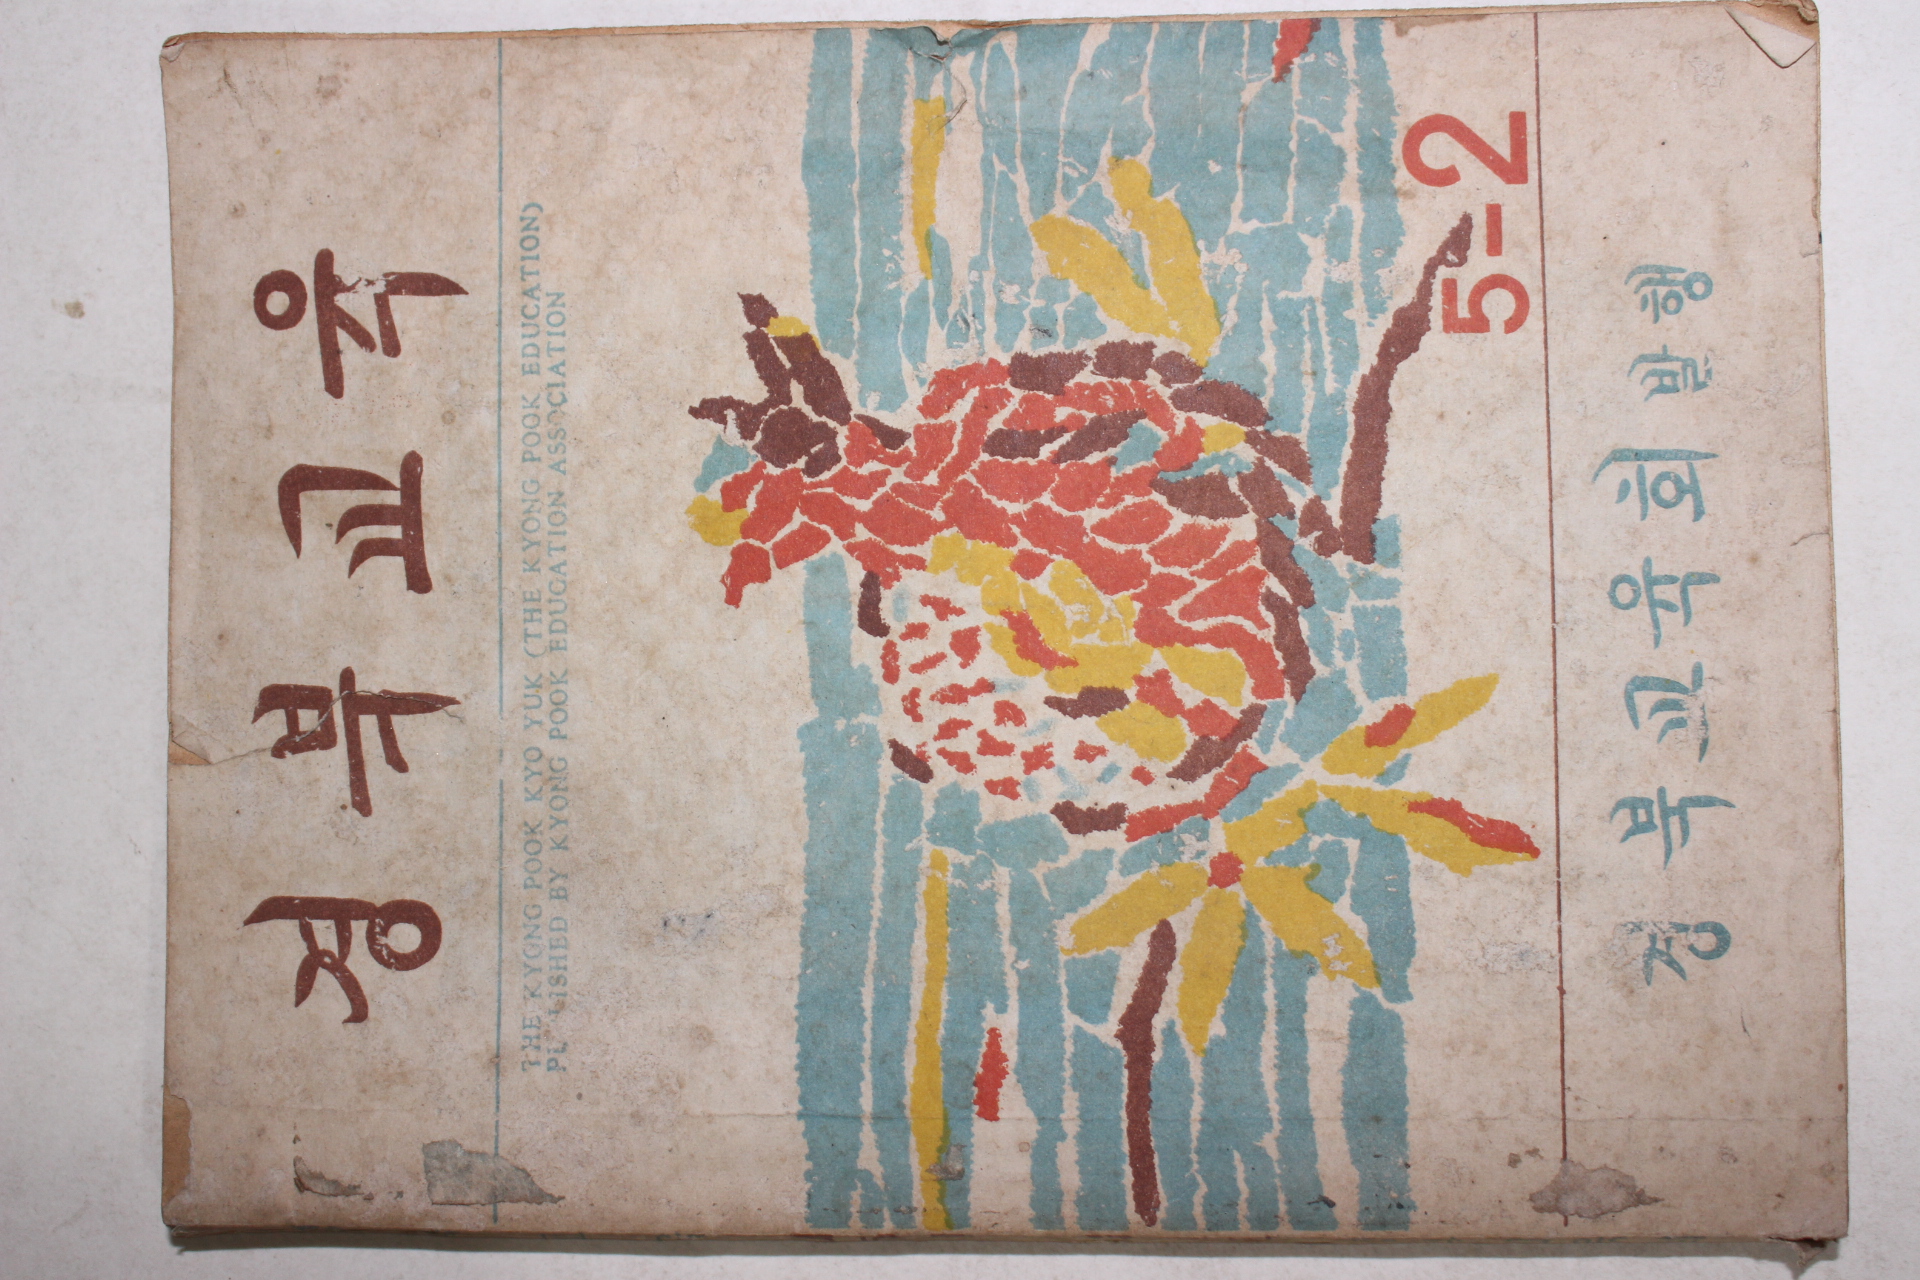 경북교육
THE KYONG POOK KYO YUK (THE KYONG POOK EDUCATION)
PUBLISHED BY KYONG POOK EDUCATION ASSOCIATION
5-2
경북교육회발행